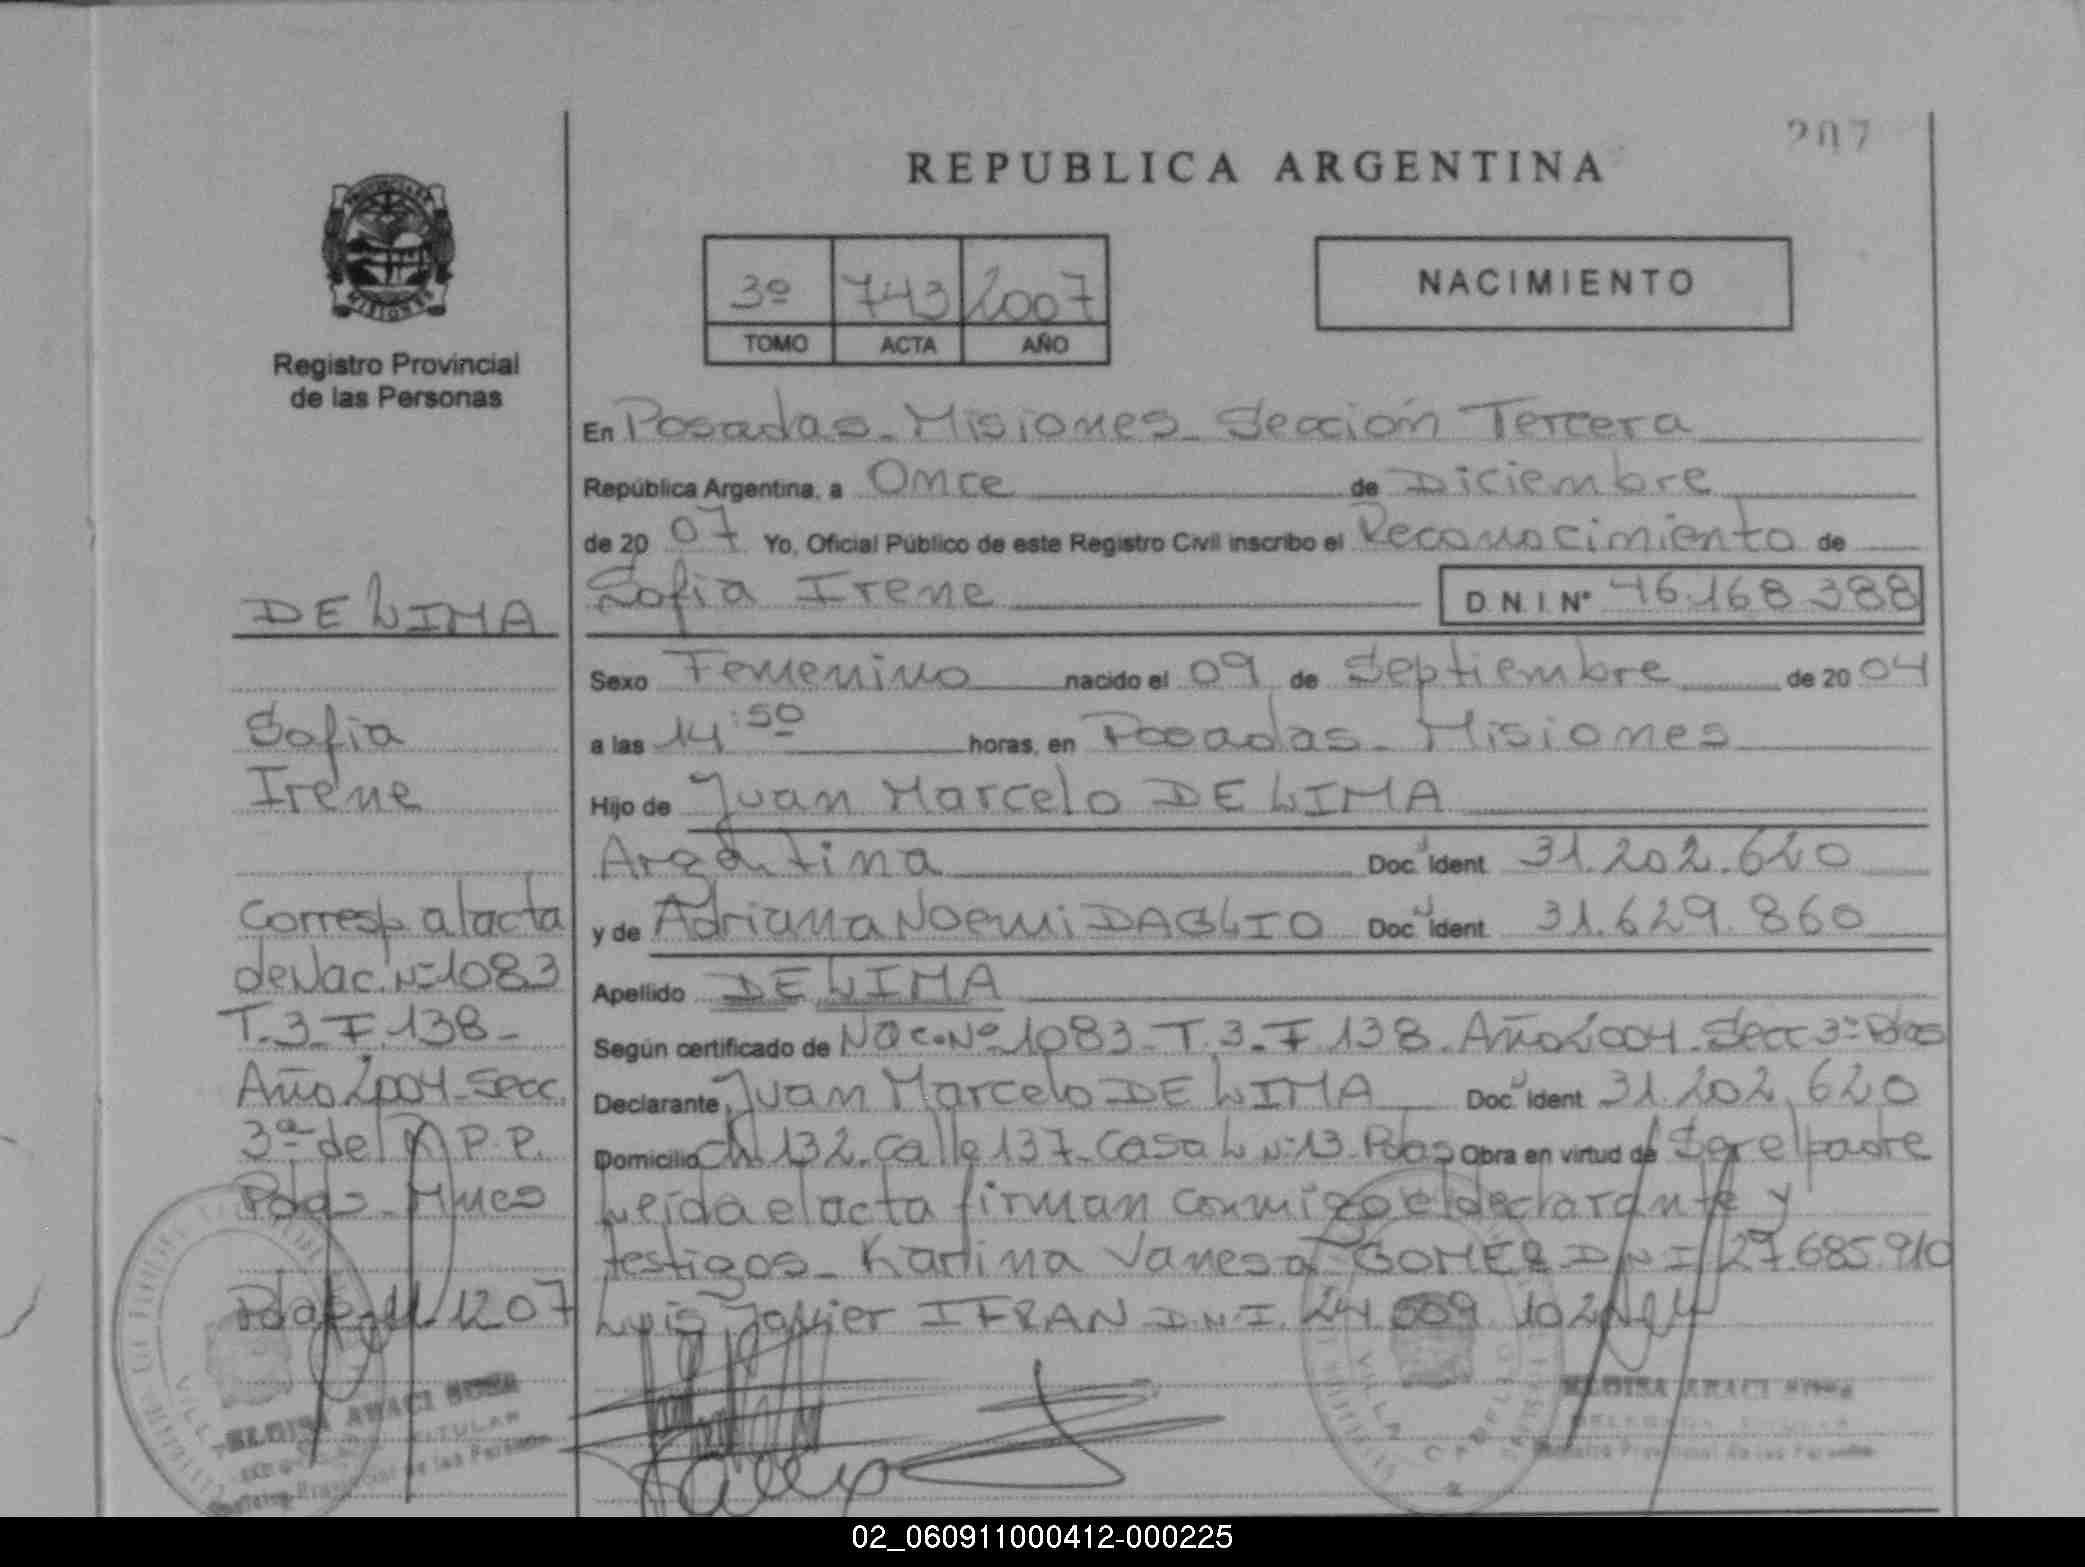 207
REPUBLICA ARGENTINA
3º 743 2007
TOMO ACTA AÑO
NACIMIENTO
MISIONES
Registro Provincial
de las Personas
En Posadas - Misiones - Sección Tercera
República Argentina, a Once de Diciembre
de 2007 Yo, Oficial Público de este Registro Civil inscribo el Reconocimiento de
Sofia Irene D.N.I Nº 46.168.388
Sexo Femenino nacido el 09 de Septiembre de 2004
a las 14:50 horas, en Posadas - Misiones
Hijo de Juan Marcelo DE LIMA
Argentina Doc. Ident. 31.202.620
y de Adriana Noemi DAGLIO Doc. Ident. 31.629.860
Apellido DE LIMA
Según certificado de Nac. Nº 1083 - T. 3 - F. 138 - Año 2004 - Secc 3ª Pdas
Declarante Juan Marcelo DE LIMA Doc. Ident 31.202.620
Domicilio Ch 132 - calle 137 - Casa L Nº 13 - Pdas Obra en virtud de Ser el padre
Leída el acta firman conmigo el declarante y
testigos - Karina Vanesa GOMEZ D.N.I. 27.685.910
Luis Javier IFRAN D.N.I. 24.009.102
DE LIMA
Sofia
Irene
Corresp. al acta
de Nac. Nº 1083
T. 3 - F. 138 -
Año 2004 - Secc.
3ª del R.P.P.
Pdas - Mnes
Pdas 11 12 07
ELOISA ARACI SOSA
TITULAR
Registro Provincial de las Personas
ELOISA ARACI SOSA
DELEGADA TITULAR
Registro Provincial de las Personas
VILLA CABELLO
02_060911000412-000225